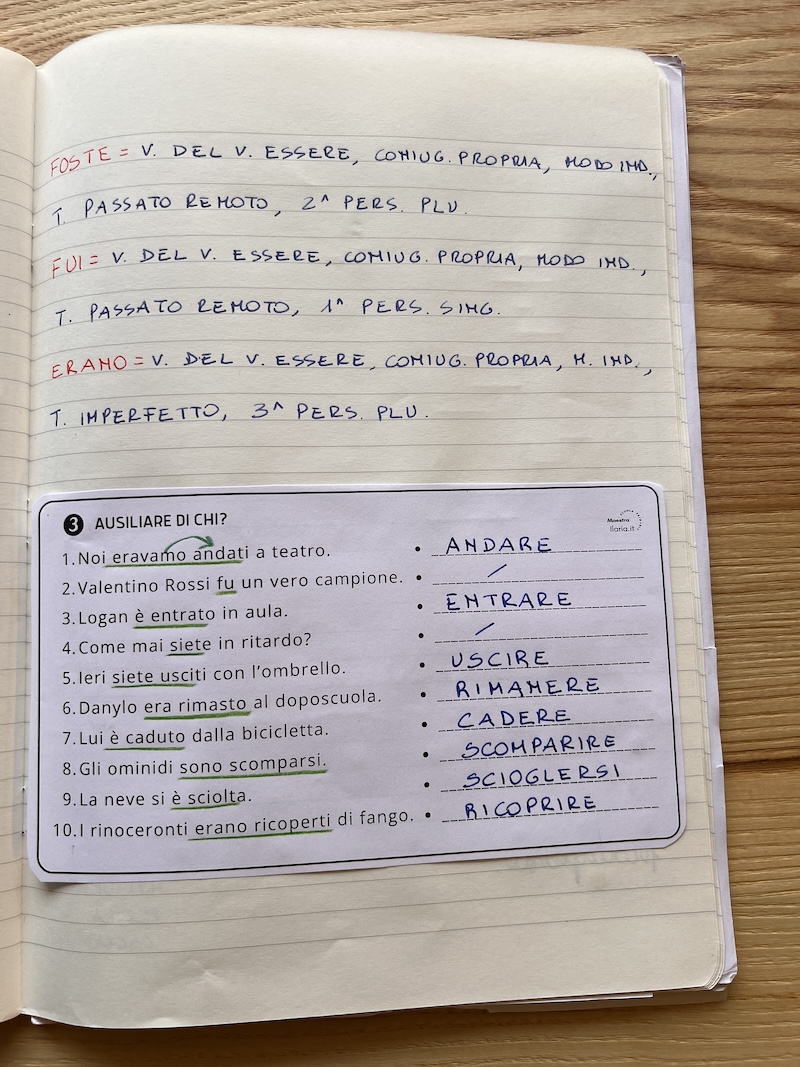 FOSTE = V. DEL V. ESSERE, CONIUG. PROPRIA, MODO IND.,
T. PASSATO REMOTO, 2^ PERS. PLU.
FUI = V. DEL V. ESSERE, CONIUG. PROPRIA, MODO IND.,
T. PASSATO REMOTO, 1^ PERS. SING.
ERANO = V. DEL V. ESSERE, CONIUG. PROPRIA, M. IND.,
T. IMPERFETTO, 3^ PERS. PLU.
3 AUSILIARE DI CHI? Maestra Ilaria.it
1. Noi eravamo andati a teatro. • ANDARE
2. Valentino Rossi fu un vero campione. • /
3. Logan è entrato in aula. • ENTRARE
4. Come mai siete in ritardo? • /
5. Ieri siete usciti con l'ombrello. • USCIRE
6. Danylo era rimasto al doposcuola. • RIMANERE
7. Lui è caduto dalla bicicletta. • CADERE
8. Gli ominidi sono scomparsi. • SCOMPARIRE
9. La neve si è sciolta. • SCIOGLERSI
10. I rinoceronti erano ricoperti di fango. • RICOPRIRE